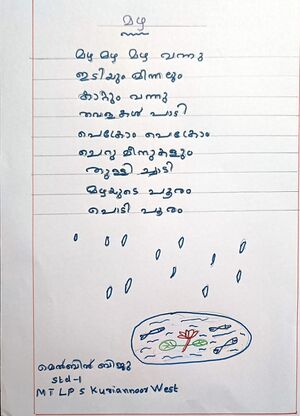 മഴ
മഴ മഴ മഴ വന്നു
ഇടിയും മിന്നലും
കാറ്റും വന്നു
തവളകൾ പാടി
പെക്രോം പെക്രോം
ചെറു മീനുകളും
തുള്ളി ച്ചാടി
മഴയുടെ പൂരം
പൊടി പൂരം
മെൽബിൻ ബിജു
std-1
MT LP S Kuriannoor West